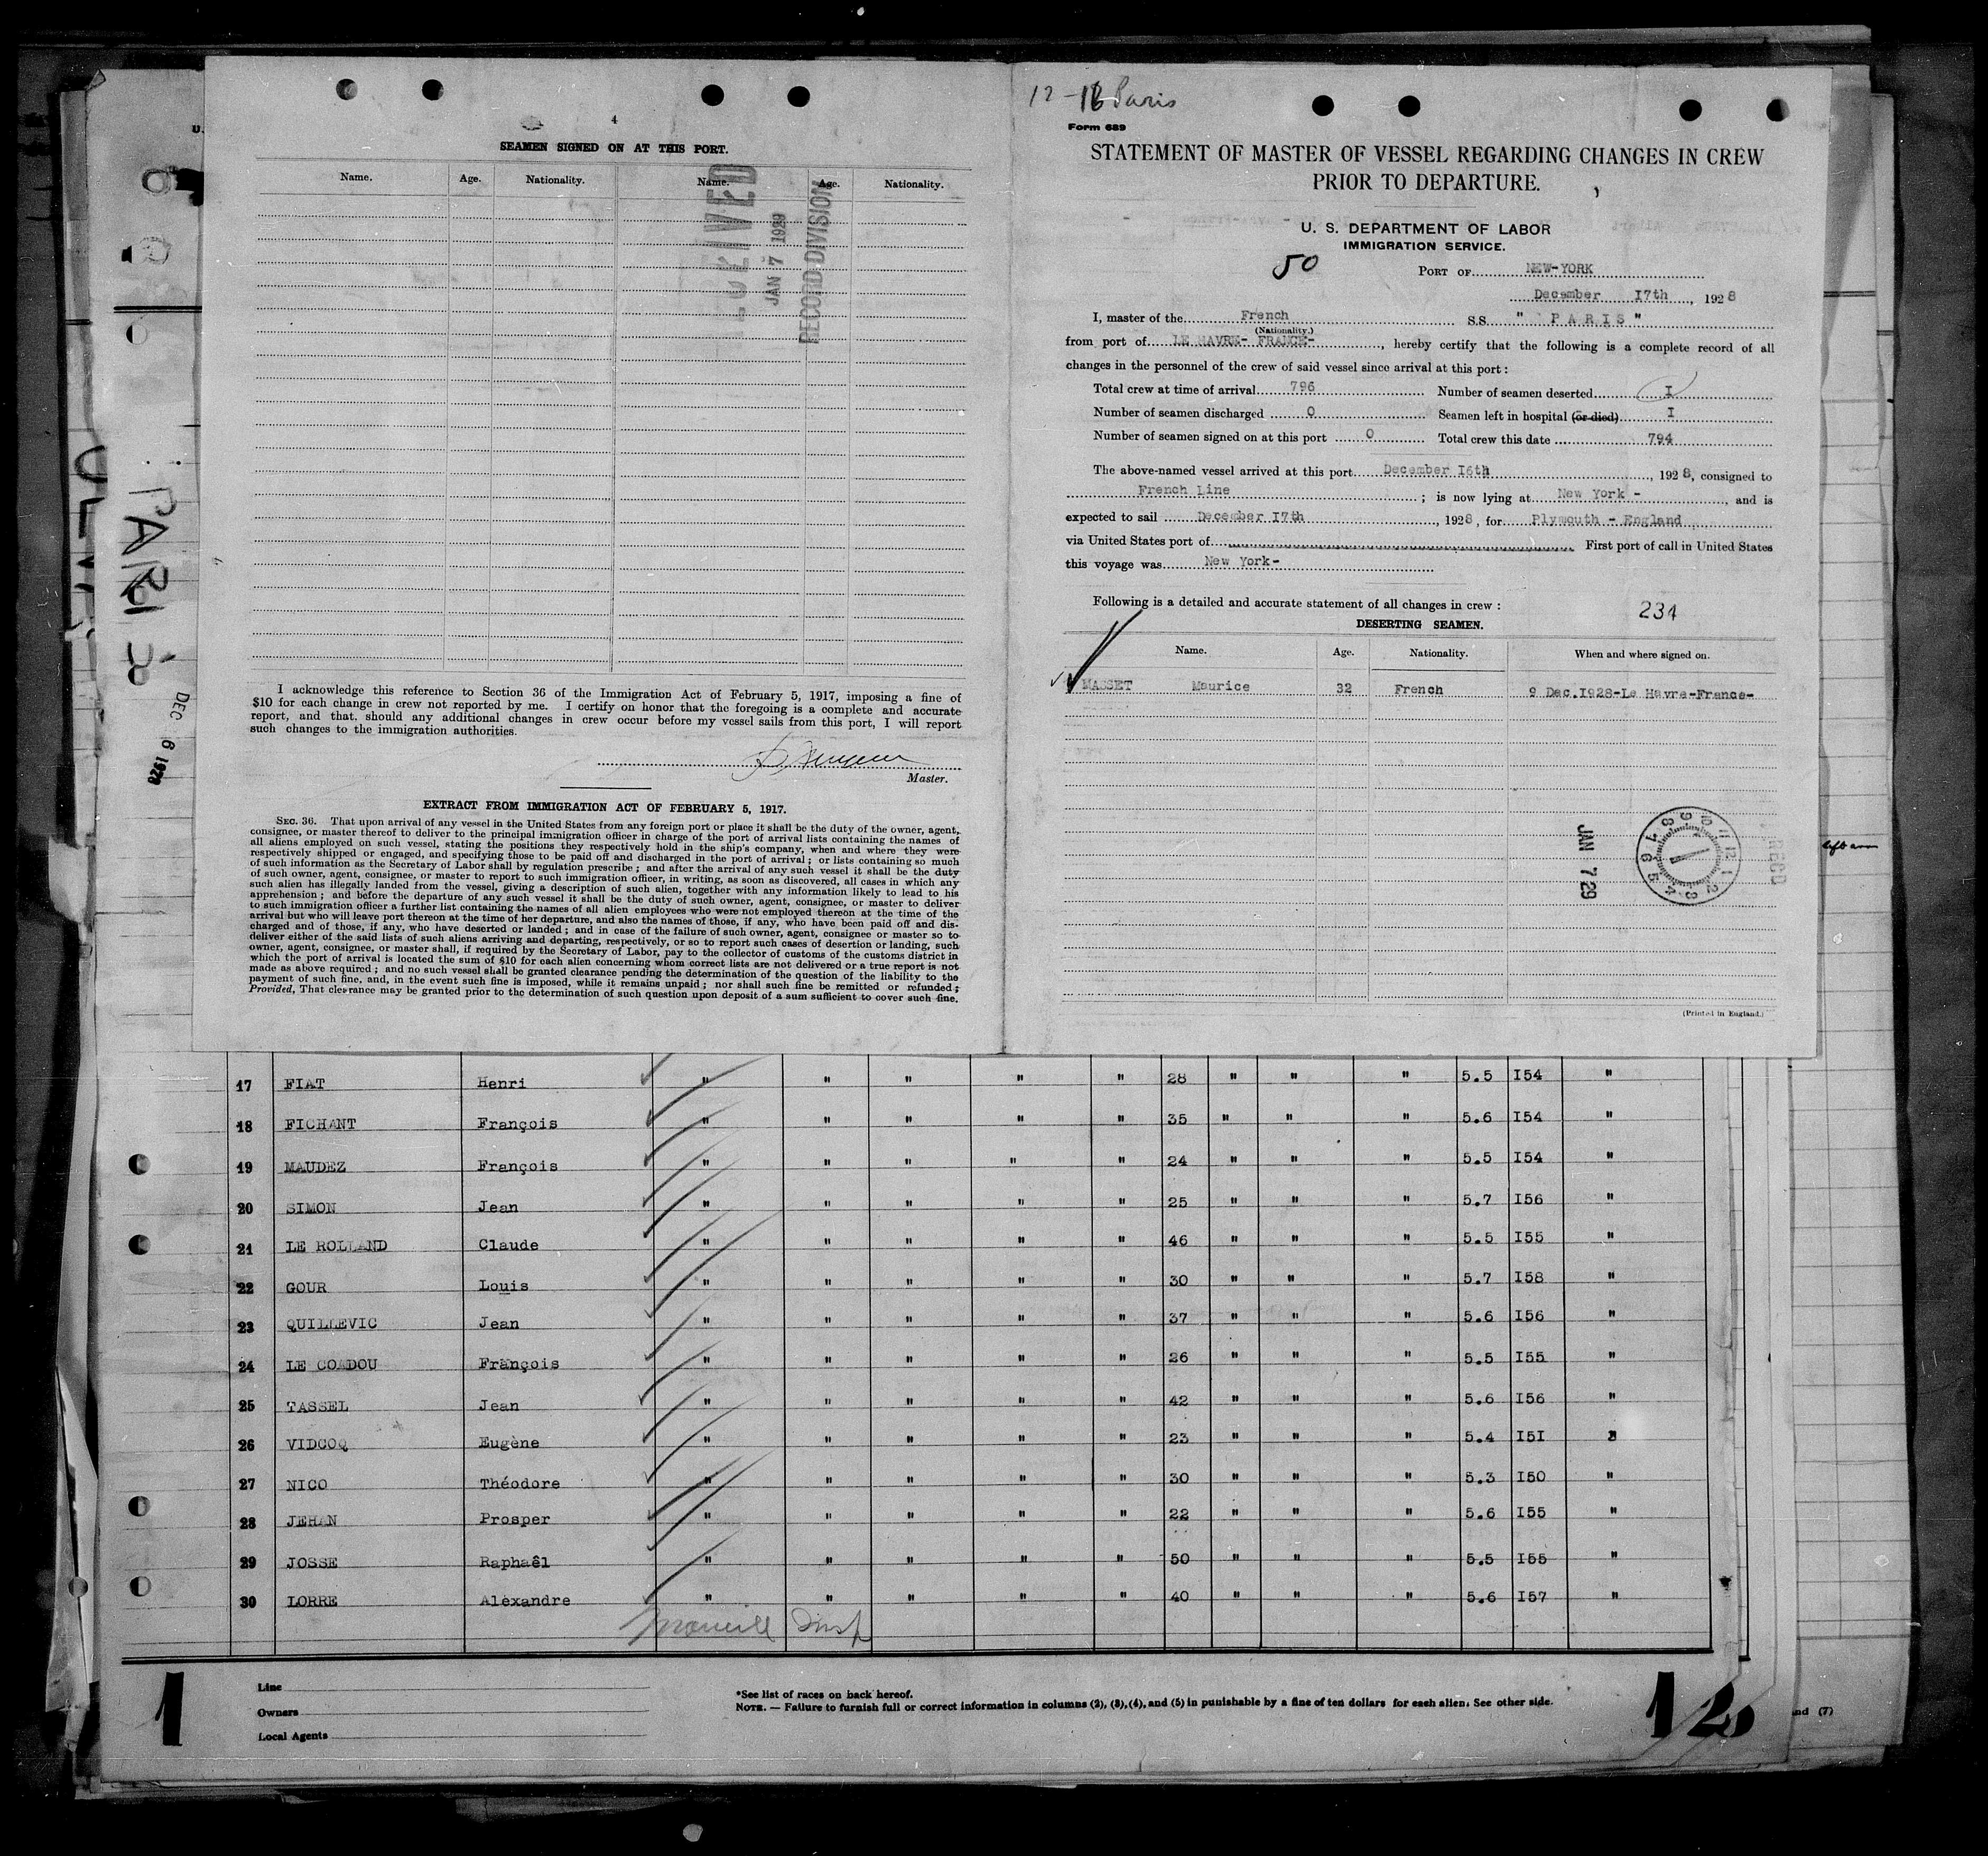 4
SEAMEN SIGNED ON AT THIS PORT.
Name. Age. Nationality. Name. Age. Nationality.
RECEIVED
JAN 7 1929
RECORD DIVISION
I acknowledge this reference to Section 36 of the Immigration Act of February 5, 1917, imposing a fine of
$10 for each change in crew not reported by me. I certify on honor that the foregoing is a complete and accurate
report, and that. should any additional changes in crew occur before my vessel sails from this port, I will report
such changes to the immigration authorities.
Master.
EXTRACT FROM IMMIGRATION ACT OF FEBRUARY 5, 1917.
SEC. 36. That upon arrival of any vessel in the United States from any foreign port or place it shall be the duty of the owner, agent,
consignee, or master thereof to deliver to the principal immigration officer in charge of the port of arrival lists containing the names of
all aliens employed on such vessel, stating the positions they respectively hold in the ship's company, when and where they were
respectively shipped or engaged, and specifying those to be paid off and discharged in the port of arrival; or lists containing so much
of such information as the Secretary of Labor shall by regulation prescribe; and after the arrival of any such vessel it shall be the duty
of such owner, agent, consignee, or master to report to such immigration officer, in writing, as soon as discovered, all cases in which any
such alien has illegally landed from the vessel, giving a description of such alien, together with any information likely to lead to his
apprehension; and before the departure of any such vessel it shall be the duty of such owner, agent, consignee, or master to deliver
to such immigration officer a further list containing the names of all alien employees who were not employed thereon at the time of the
arrival but who will leave port thereon at the time of her departure, and also the names of those, if any, who have been paid off and dis-
charged and of those, if any, who have deserted or landed; and in case of the failure of such owner, agent, consignee or master so to
deliver either of the said lists of such aliens arriving and departing, respectively, or so to report such cases of desertion or landing, such
owner, agent, consignee, or master shall, if required by the Secretary of Labor, pay to the collector of customs of the customs district in
which the port of arrival is located the sum of $10 for each alien concerning whom correct lists are not delivered or a true report is not
made as above required; and no such vessel shall be granted clearance pending the determination of the question of the liability to the
payment of such fine, and, in the event such fine is imposed, while it remains unpaid; nor shall such fine be remitted or refunded;
Provided, That clearance may be granted prior to the determination of such question upon deposit of a sum sufficient to cover such fine.
12-16 Paris
Form 689
STATEMENT OF MASTER OF VESSEL REGARDING CHANGES IN CREW
PRIOR TO DEPARTURE.
U. S. DEPARTMENT OF LABOR
IMMIGRATION SERVICE.
50
PORT OF NEW-YORK
December I7th, 1928
I, master of the French S.S. " PARIS "
(Nationality.)
from port of LE HAVRE- FRANCE-, hereby certify that the following is a complete record of all
changes in the personnel of the crew of said vessel since arrival at this port:
Total crew at time of arrival 796 Number of seamen deserted I
Number of seamen discharged 0 Seamen left in hospital (or died) I
Number of seamen signed on at this port 0 Total crew this date 794
The above-named vessel arrived at this port December I6th, 1928, consigned to
French Line; is now lying at New York -, and is
expected to sail December I7th, 1928, for Plymouth - England
via United States port of First port of call in United States
this voyage was New York-
Following is a detailed and accurate statement of all changes in crew:
234
DESERTING SEAMEN.
Name. Age. Nationality. When and where signed on.
MASSET Maurice 32 French 9 Dec.I928-Le Havre-France-
JAN 7 29
REC'D
(Printed in England.)
PARIS
DEC 6 1928
left arm
17 FIAT Henri " " " " " 28 " " " 5.5 I54 "
18 FICHANT François " " " " " 35 " " " 5.6 I54 "
19 MAUDEZ François " " " " " 24 " " " 5.5 I54 "
20 SIMON Jean " " " " " 25 " " " 5.7 I56 "
21 LE ROLLAND Claude " " " " " 46 " " " 5.5 I55 "
22 GOUR Louis " " " " " 30 " " " 5.7 I58 "
23 QUILLEVIC Jean " " " " " 37 " " " 5.6 I56 "
24 LE COADOU François " " " " " 26 " " " 5.5 I55 "
25 TASSEL Jean " " " " " 42 " " " 5.6 I56 "
26 VIDCOQ Eugène " " " " " 23 " " " 5.4 I5I "
27 NICO Théodore " " " " " 30 " " " 5.3 I50 "
28 JEHAN Prosper " " " " " 22 " " " 5.6 I55 "
29 JOSSE Raphaêl " " " " " 50 " " " 5.5 I55 "
30 LORRE Alexandre " " " " " 40 " " " 5.6 I57 "
Insp
1
Line
Owners
Local Agents
*See list of races on back hereof.
NOTE. — Failure to furnish full or correct information in columns (2), (3), (4), and (5) in punishable by a fine of ten dollars for each alien. See other side.
12
and (7)